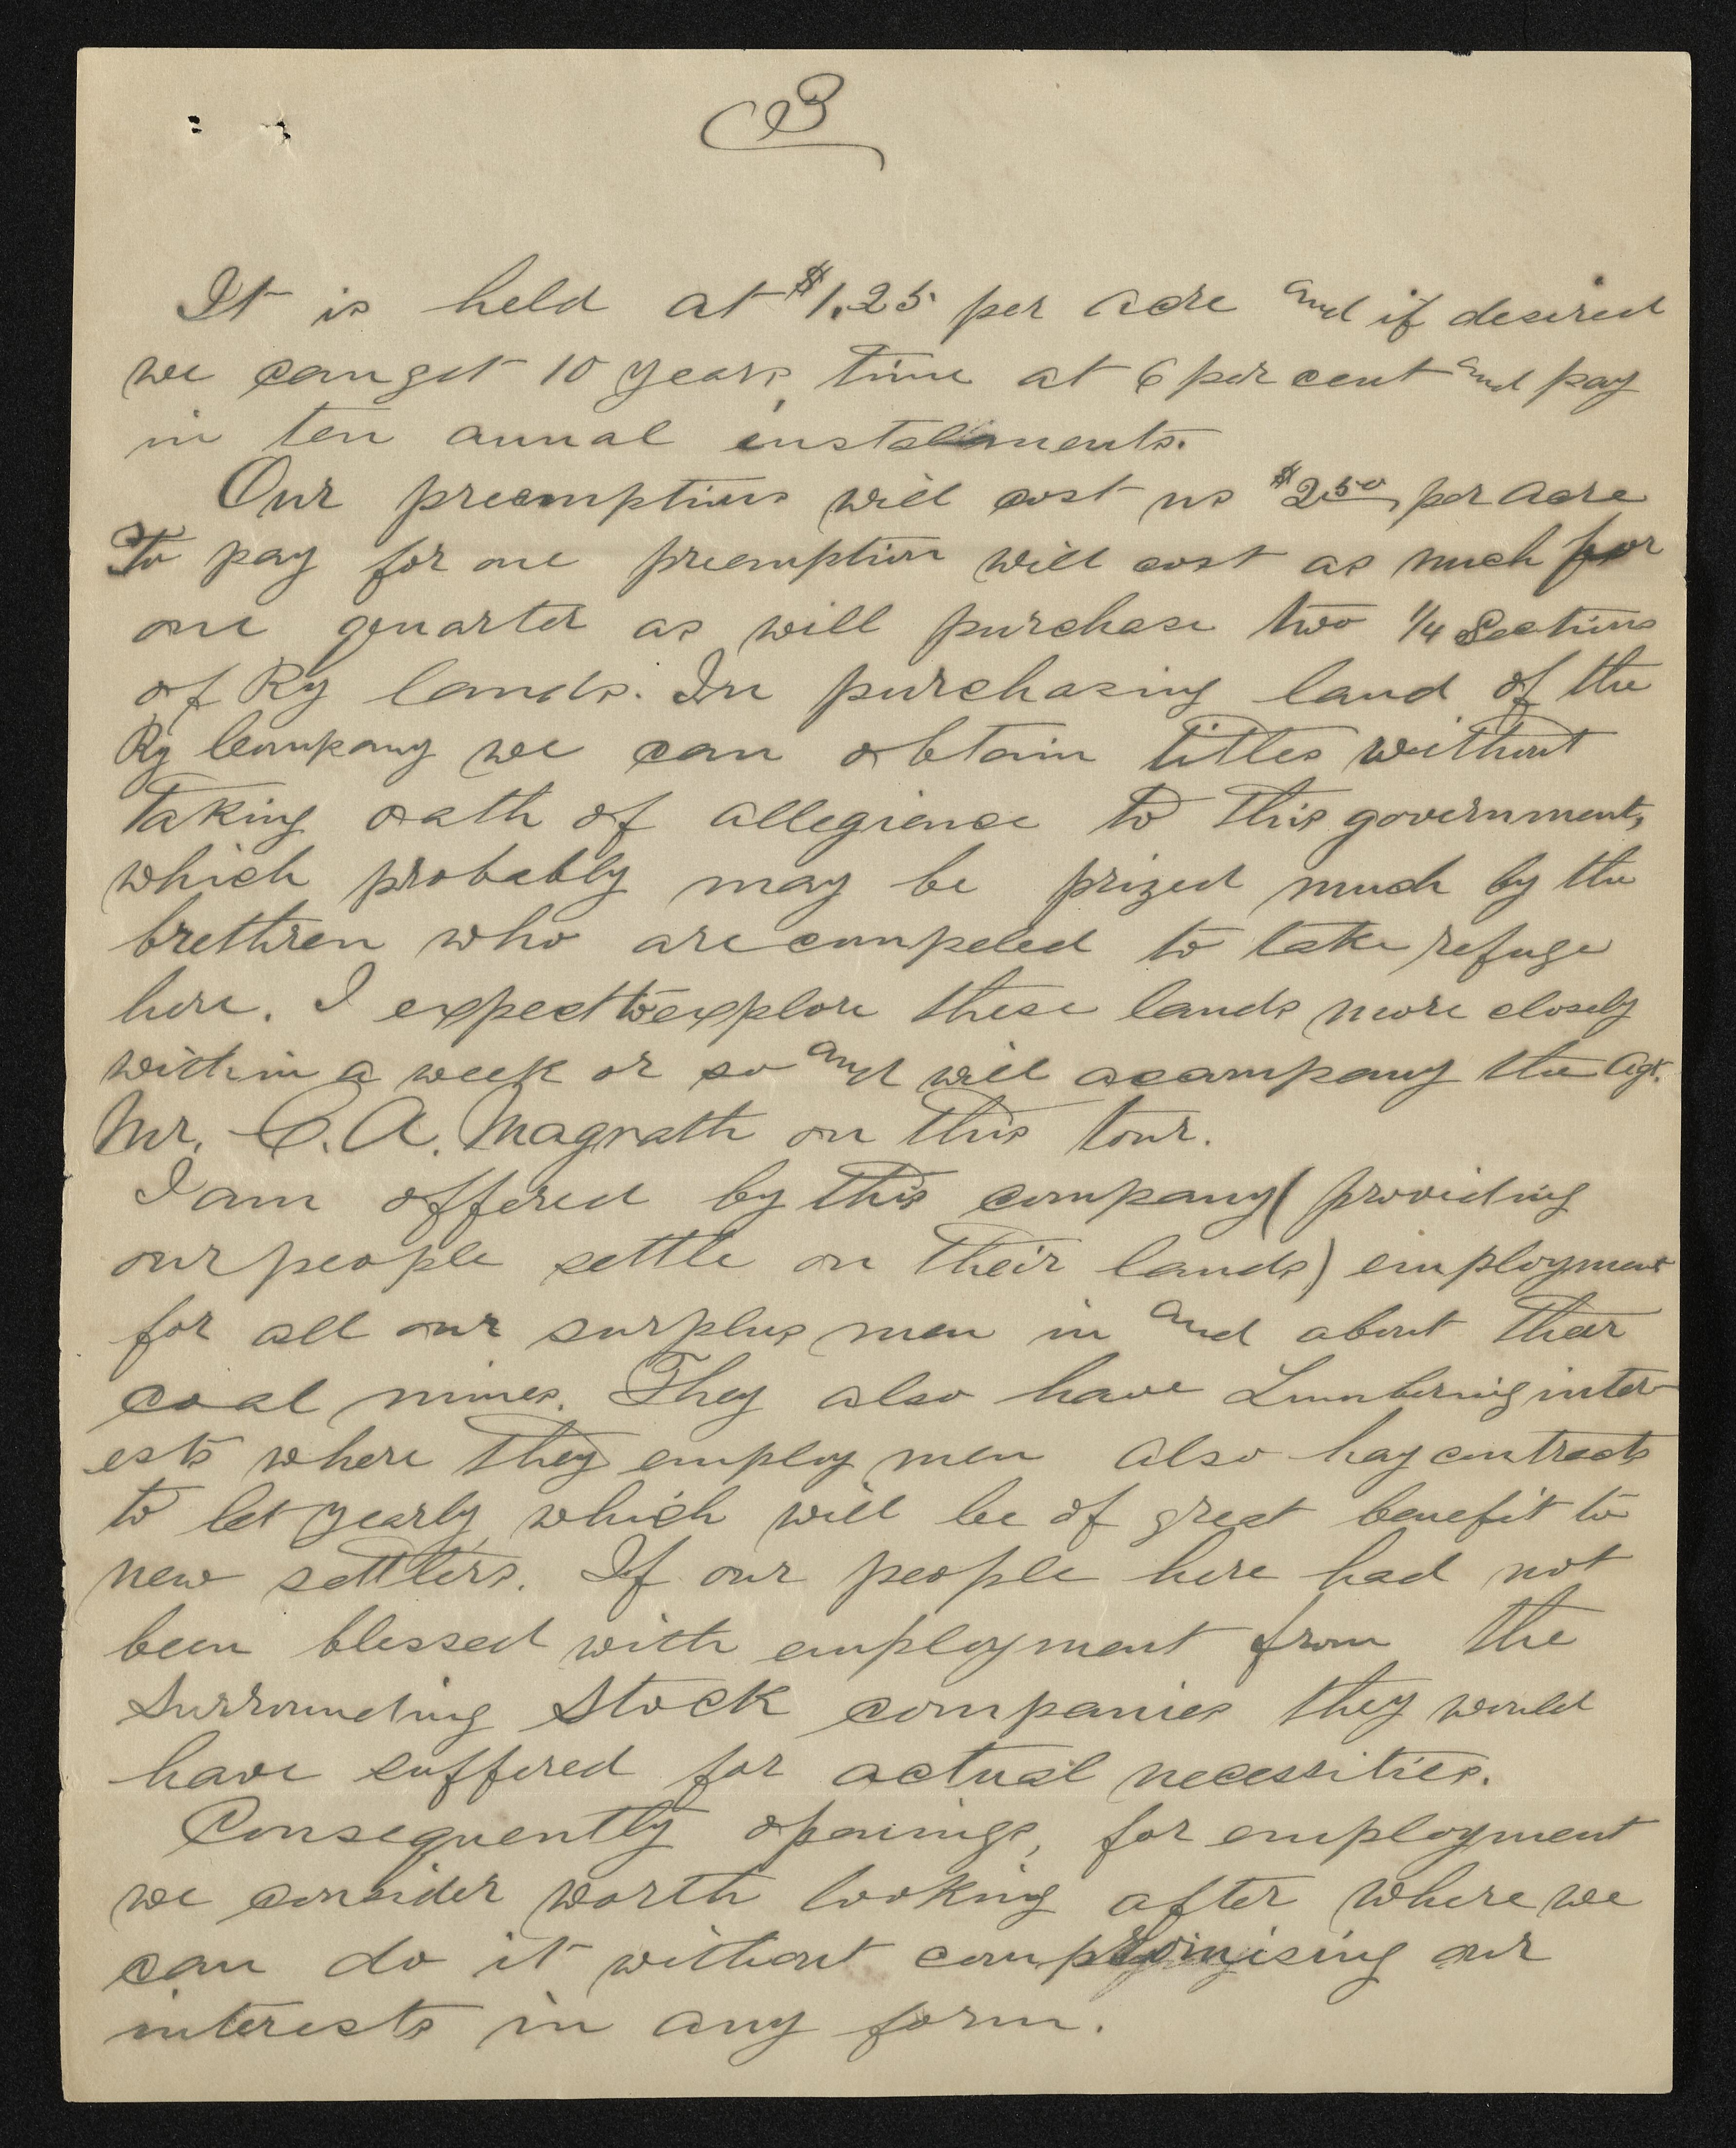 3
It is held at $1.25 per acre and if desired
we can get 10 years, time at 6 per cent and pay
in ten annual instalments.
Our preemptions will cost us $2.50, per acre
To pay for one preemption will cost as much for
one quarter as will purchase two 1/4 Sections
of Ry lands. In purchasing land of the
Ry Company we can obtain titles without
taking oath of allegience to this government,
which probably may be prized much by the
brethren who are compeled to take refuge
here. I expect to explore these lands more closely
within a week or so and will acompany the Agt.
Mr. C. A. Magrath on this tour.
I am offered by this company (providing
our people settle on their lands) employment
for all our surplus men in and about their
coal mines. They also have Lumbering inter-
ests where they employ men also hay contracts
to let yearly, which will be of great benefit to
new settlers. If our people here had not
been blessed with employment from the
surrounding Stock companies they would
have suffered for actual necessities.
Consequently openings, for employment
we consider worth looking after where we
can do it without compromising our
interests in any form.